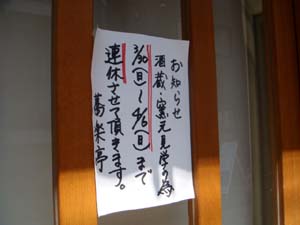 お知らせ
酒蔵・窯元見学の為
3/30(日)〜4/6(日)まで
連休させて頂きます。
萬楽亭